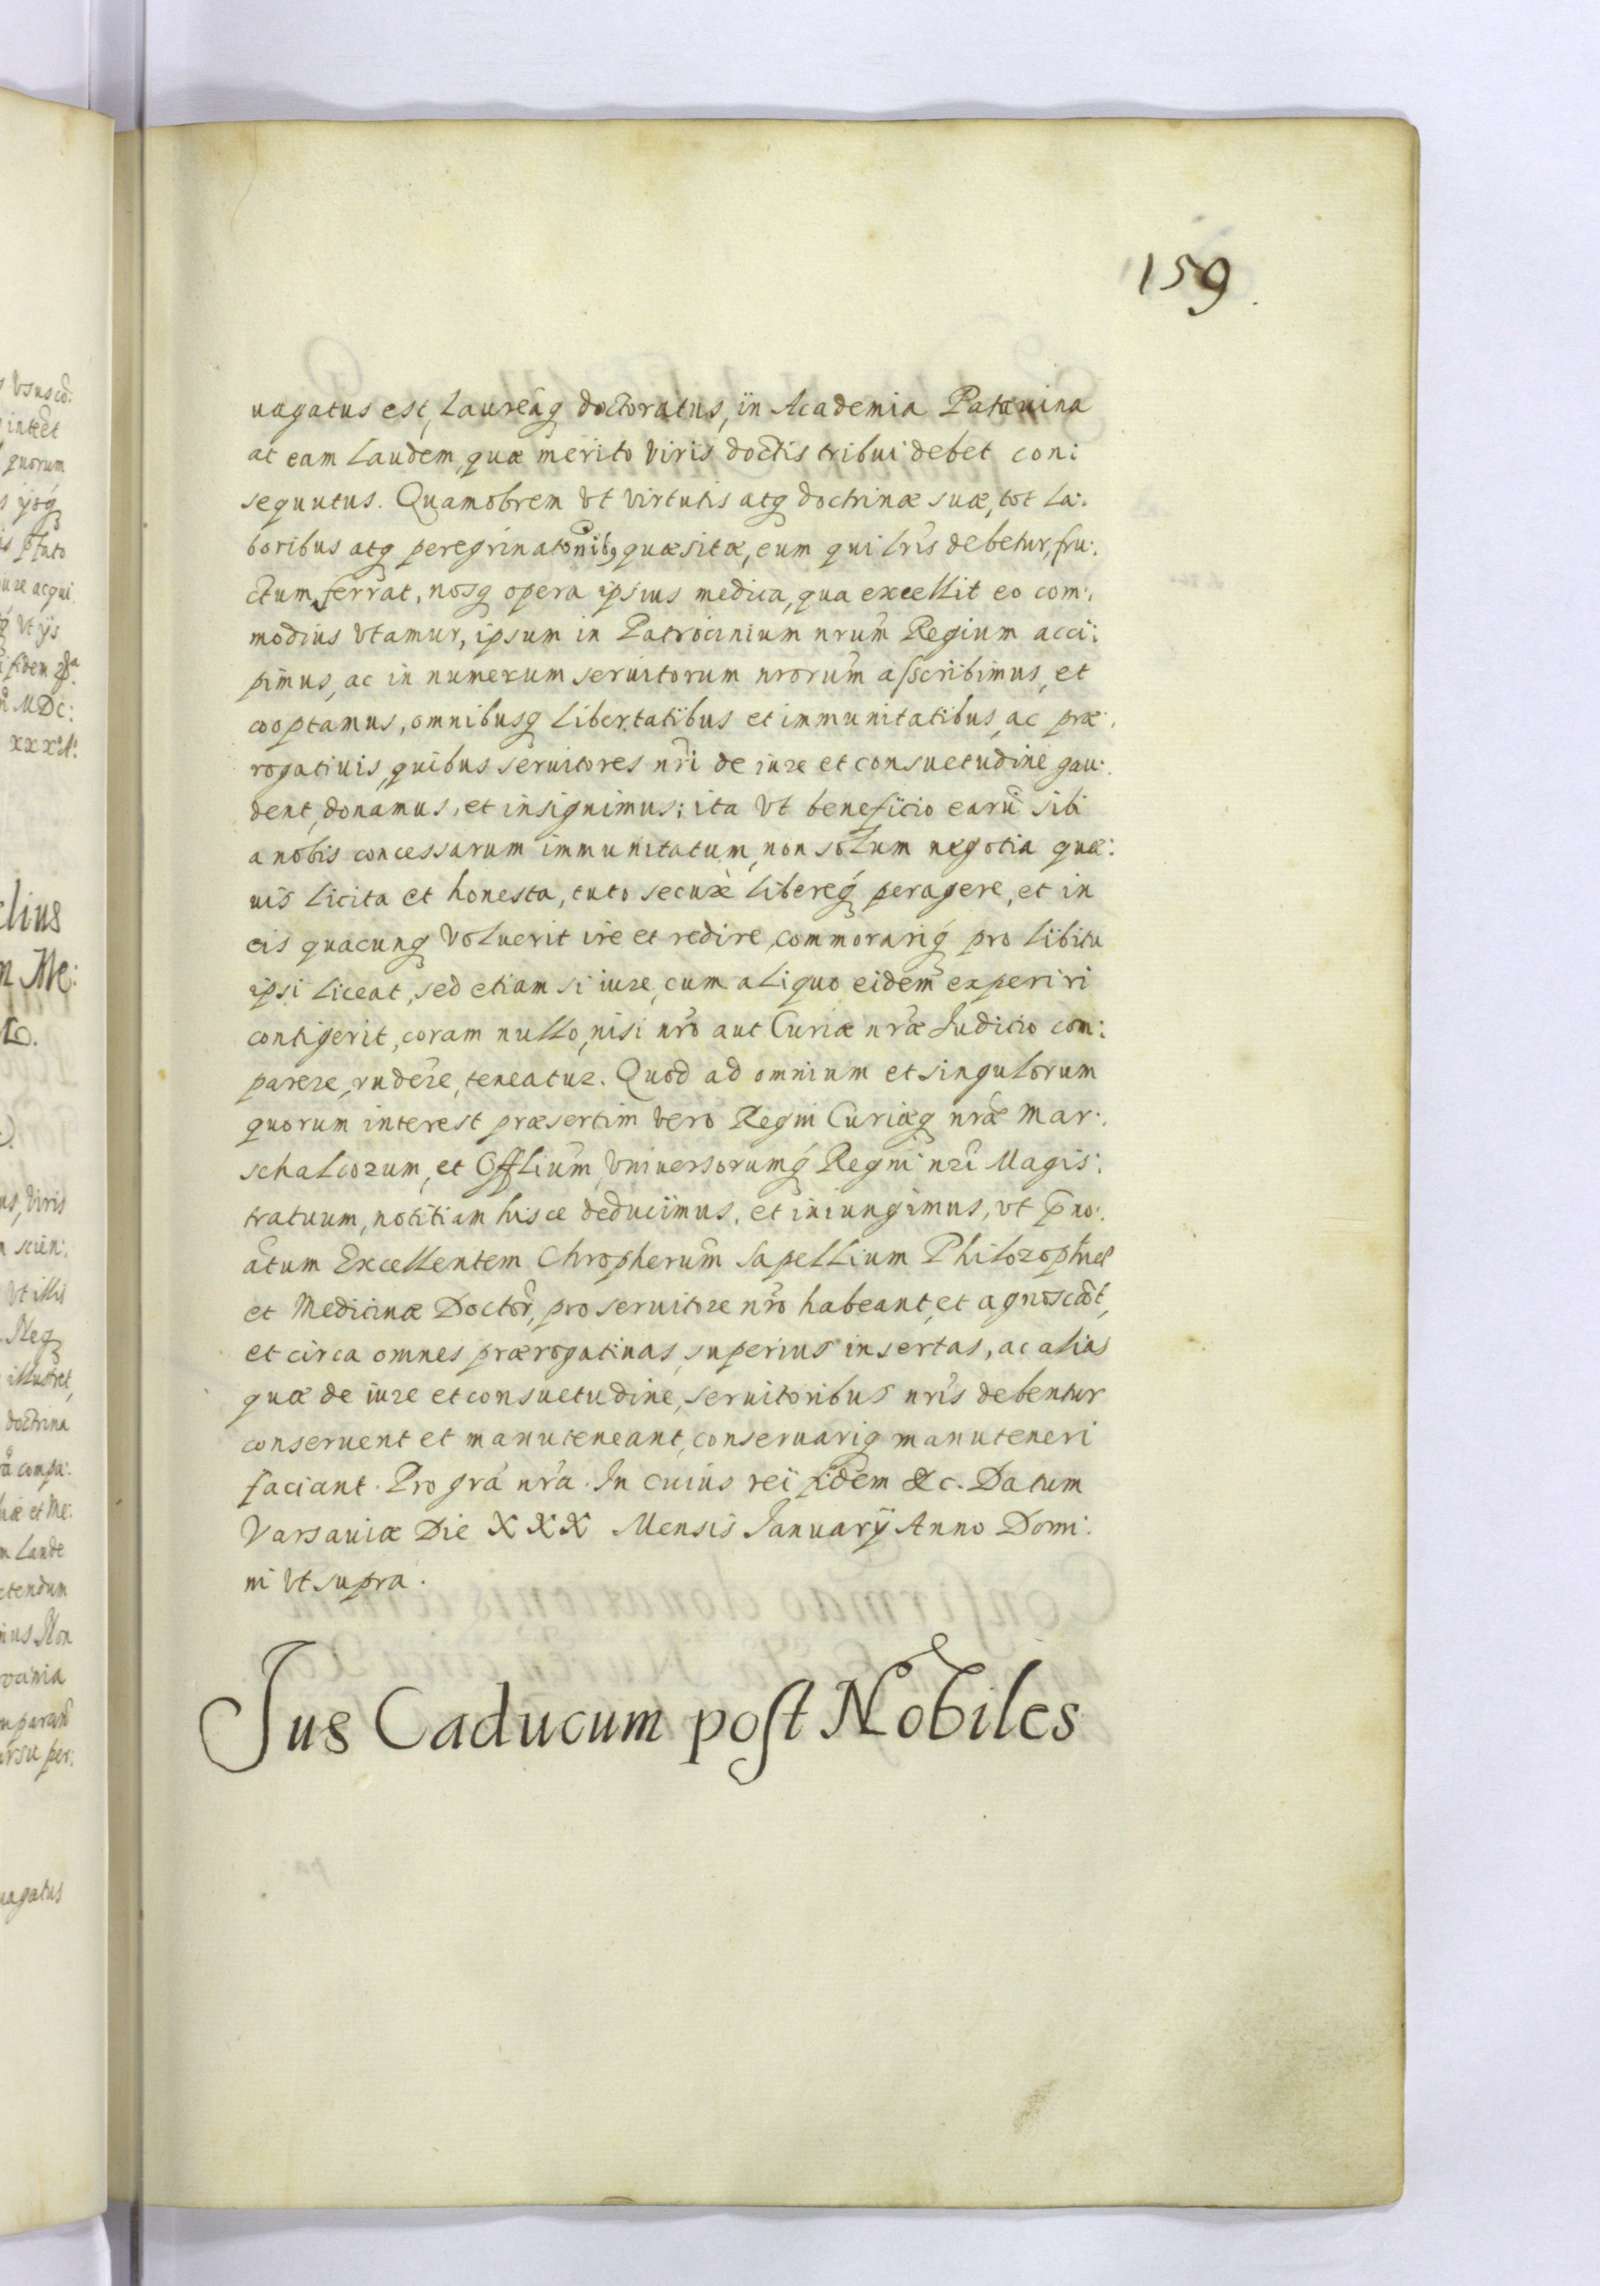 159
uagatus est, Laureaq doctoratus, in Academia Patauina
at eam Laudem, quæ merito Viris doctis tribui debet con:
sequutus. Quamobrem Vt Virtutis atq doctrinæ suæ, tot la:
boribus atq peregrinationib9 quæsitæ, eum qui Lris debetur, fru:
ctum, ferrat, nosq opera ipsius medica, qua excellit eo com:
modius Vtamur, ipsum in Patrocinium nrum Regium acci:
pimus, ac in numerum seruitorum nrorum asscribimus, et
cooptamus, omnibusq Libertatibus et immunitatibus, ac præ:
rogatiuis, quibus seruitores nri de iure et consuetudine gau:
dent, donamus, et insignimus; ita Vt beneficio earu sibi
a nobis concessarum immunitatum, non solum negotia quæ:
uis licita et honesta, tuto secure libereq peragere, et in
eis quacunq Voluerit ire et redire, commorariq pro libitu
ipsi Liceat, sed etiam si iure, cum aliquo eidem experiri
contigerit, coram nullo, nisi nro aut Curiæ nræ Judicio com:
parere, rndere, teneatur. Quod ad omnium et singulorum
quorum interest præsertim Vero Regni Curiæq nræ Mar:
schalcorum, et Offlium, Vniversorumq Regni nri Magis:
tratuum, notitiam hisce deducimus, et iniungimus, Vt pno:
atum Excellentem Chropherum Sapellium Philozophiæ
et Medicinæ Doctor, pro seruitore nro habeant, et agnoscat,
et circa omnes prærogatiuas, superius insertas, ac alias
quæ de iure et consuetudine, seruitoribus nris debentur
conseruent et manuteneant, conseruariq manuteneri
faciant. Pro gra nra. In cuius rei fidem &c. Datum
Varsauiæ Die XXX Mensis Januarij Anno Domi:
ni Vt supra.
Jus Caducum post Nobiles